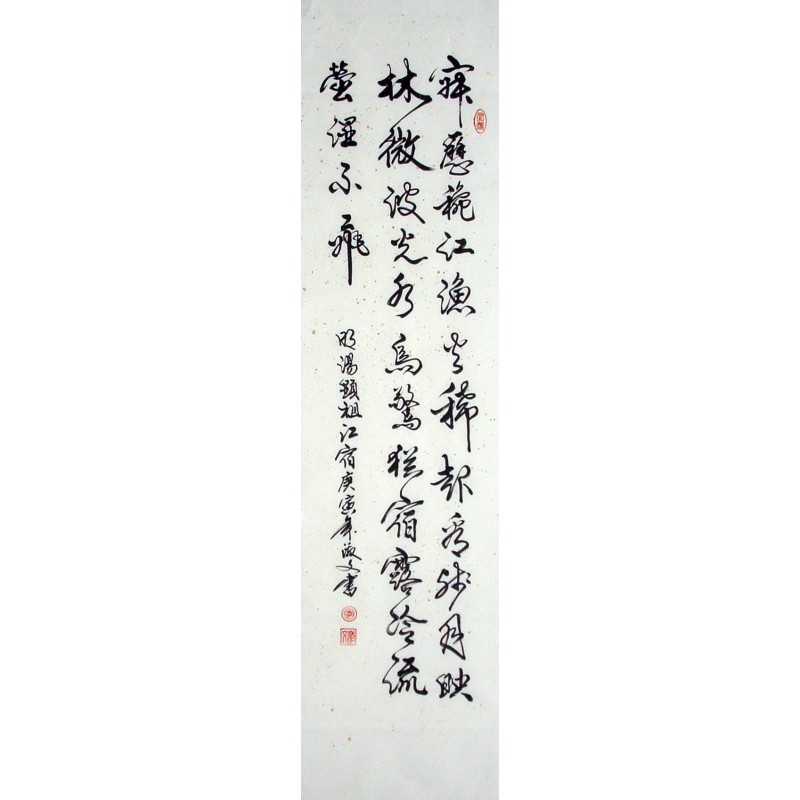 寂歷秋江漁火稀起看殘月映
林微波光水鳥驚猶宿露冷流
螢濕不飛
明湯顯祖江宿庚寅年文書